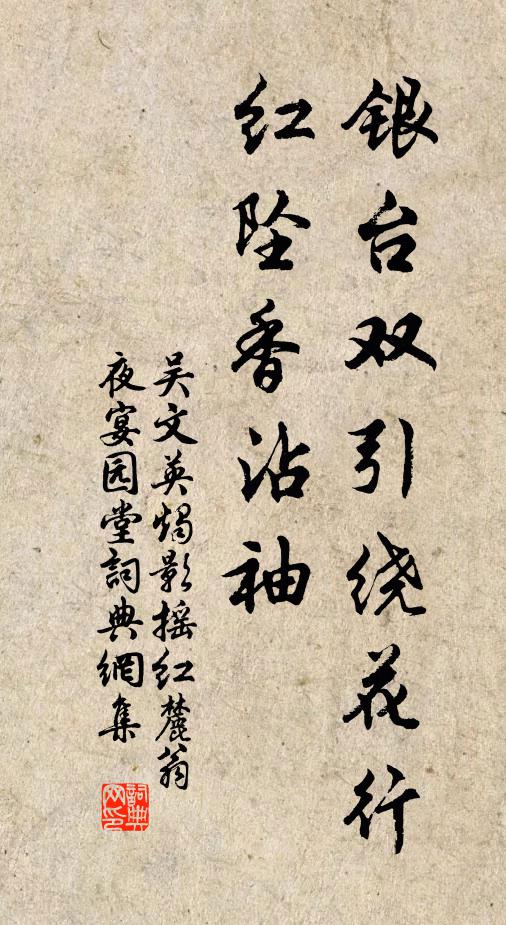 银台双引绕花行
红坠香沾袖
吴文英燭影摇红麓翁
夜宴园堂詞典網集
詞典
网印